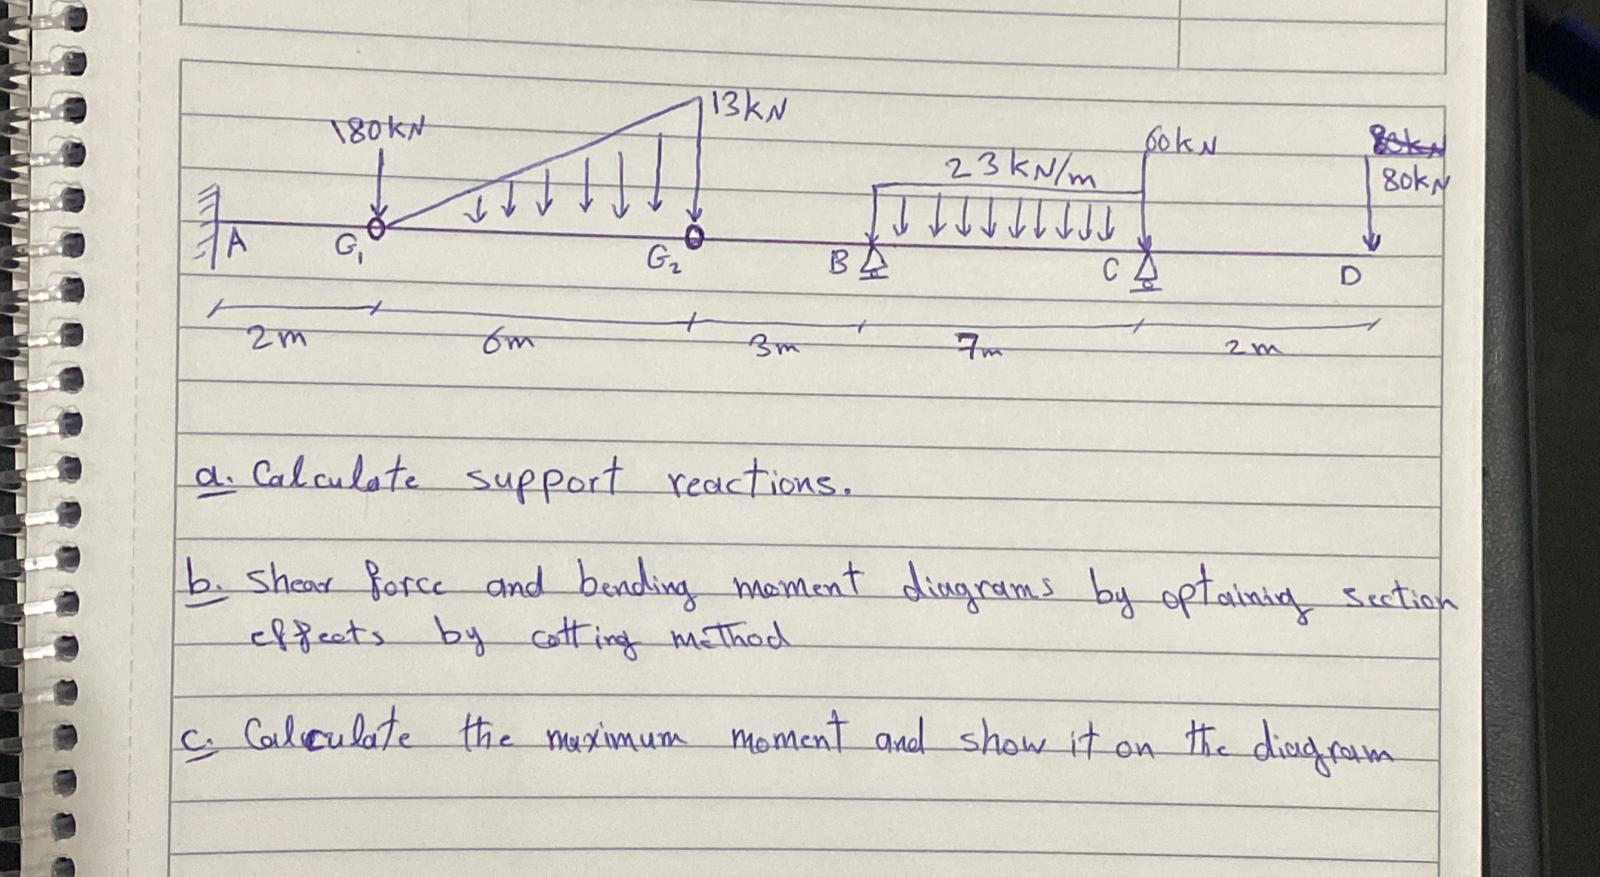 180kN
13kN
23kN/m
60kN
80kN
A
G₁
G₂
B
C
D
2m
6m
3m
7m
2m
a. Calculate support reactions.
b. shear force and bending moment diagrams by optainig section
effects by cotting method
c. Calculate the maximum moment and show it on the diagram